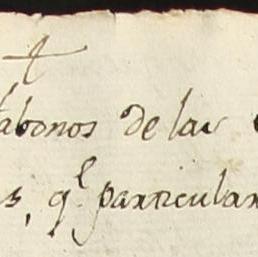 abonos de las
s, q.l particular